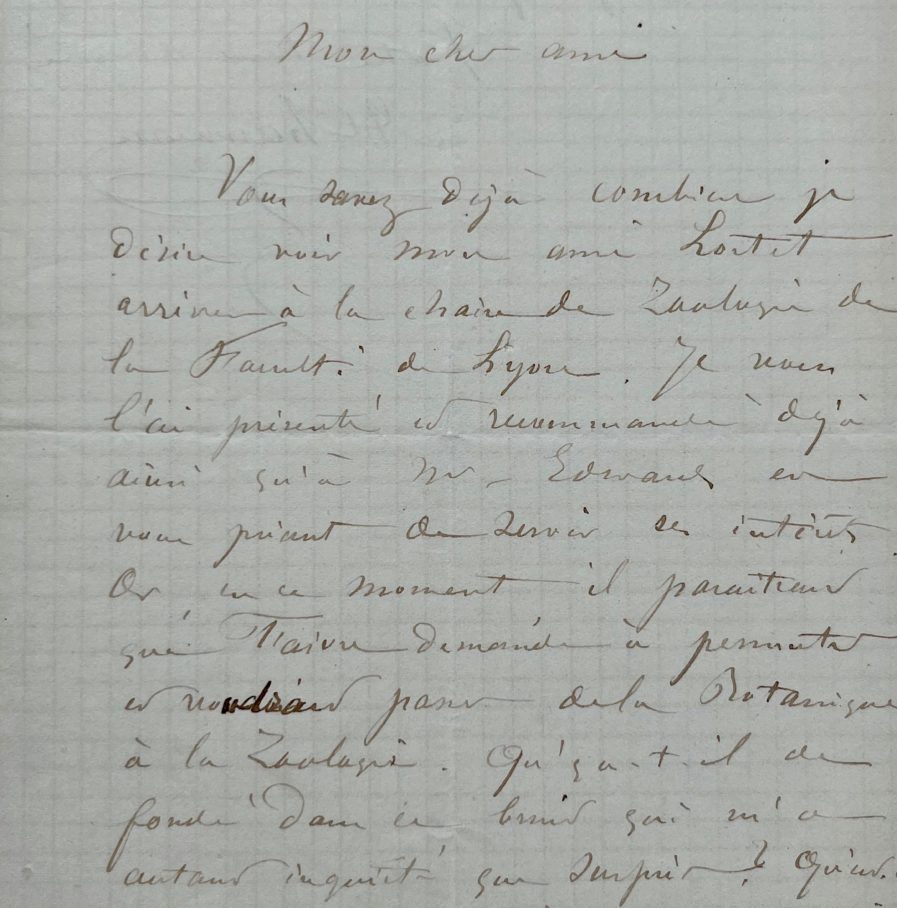 Mon cher ami
Vous savez déjà combien je
désire voir mon ami Lortet
arriver à la chaire de Zoologie de
la Faculté de Lyon. Je vous
l'ai présenté et recommandé déjà
ainsi qu'à Mr. Edwards en
vous priant de servir ses intérêts
Or en ce moment il paraitrait
que Faivre demande à permuter
et voudrait passer de la Botanique
à la Zoologie. Qu'y a-t-il de
fondé dans ce bruit qui m'a
autant inquiété que surpris?